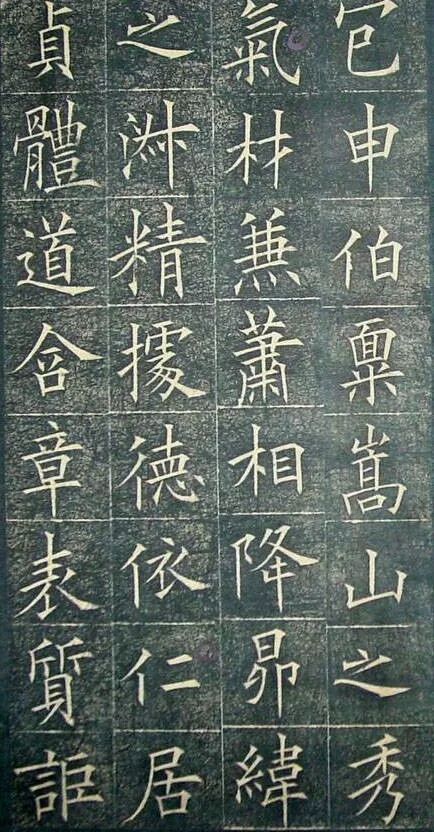 包申伯稟嵩山之秀
氣材兼蕭相降昴緯
之淑精據德依仁居
貞體道含章表質詎